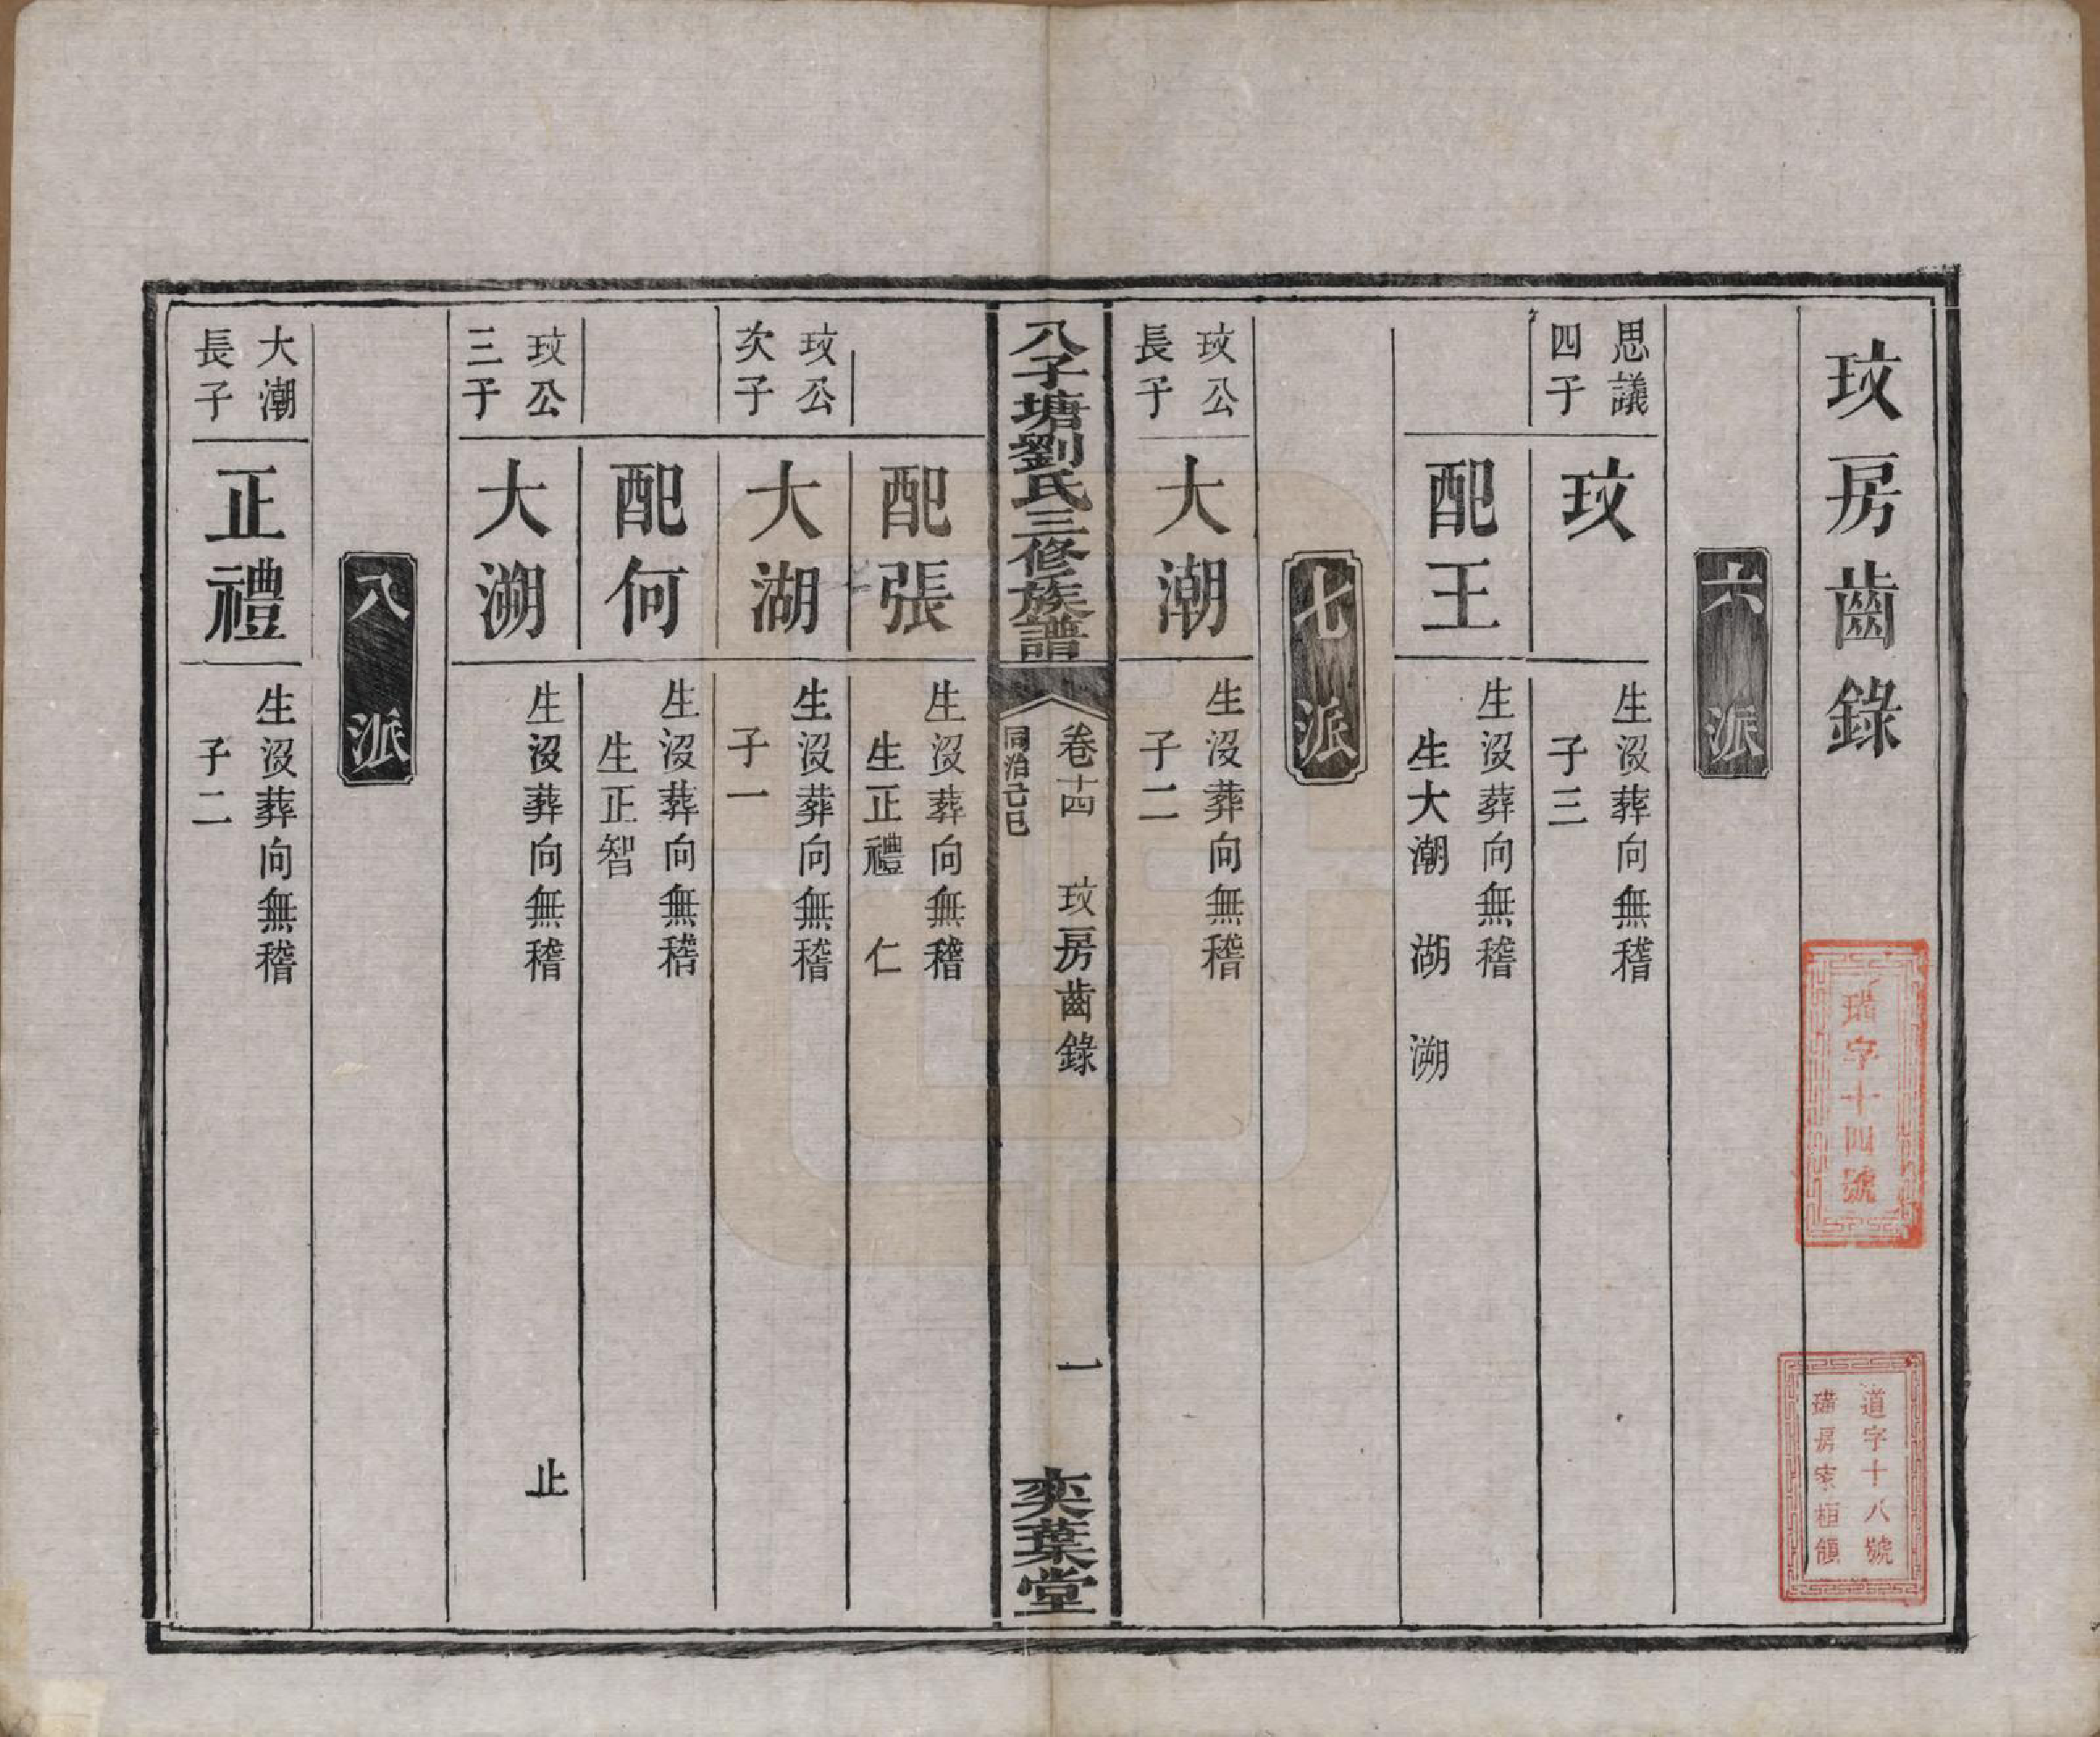 玟房齒錄
瑞字十四號
道字十八號
房
六派
思議
四子
玟
生沒葬向無稽
子三
配王
生沒葬向無稽
生大潮 湖 溯
七派
玟公
長子
大潮
生沒葬向無稽
子二
八子塘劉氏三修族譜
卷十四 玟房齒錄 一
同治己巳
奕葉堂
配張
生沒葬向無稽
生正禮 仁
玟公
次子
大湖
生沒葬向無稽
子一
配何
生沒葬向無稽
生正智
玟公
三子
大溯
生沒葬向無稽 止
八派
大潮
長子
正禮
生沒葬向無稽
子二